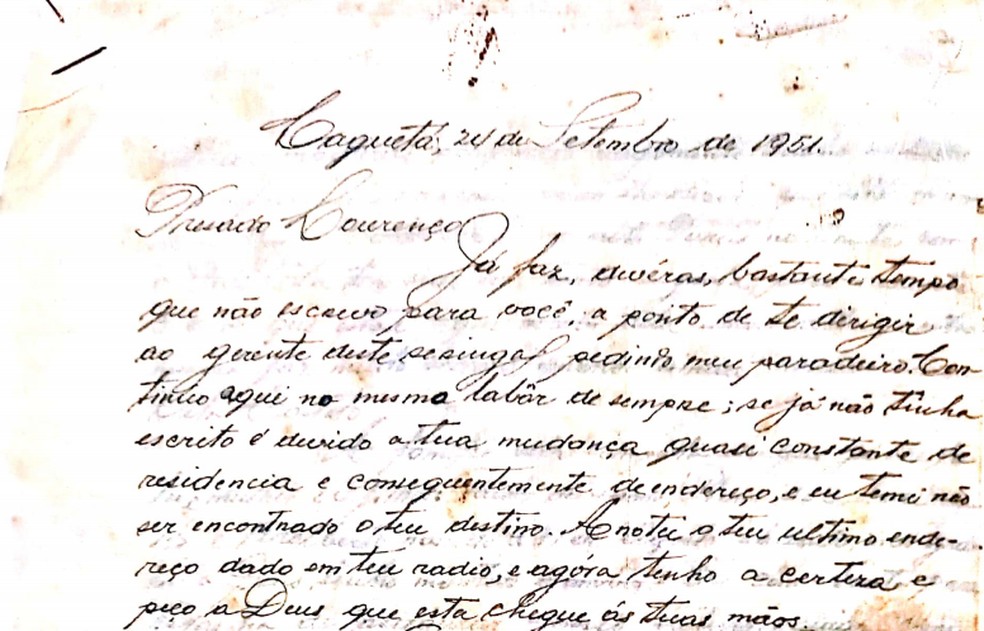 Caquetá, 24 de Setembro de 1951.
Presado Lourenço
Já faz, devéras, bastante tempo
que não escrevo para você, a ponto de te dirigir
ao gerente deste seringal pedindo meu paradeiro. Con-
tinuo aqui no mesmo labôr de sempre; se já não tinha
escrito é devido a tua mudança quasi constante de
residencia e consequentemente de endereço, e eu temi não
ser encontrado o teu destino. Anotei o teu ultimo ende-
reço dado em teu radio, e agóra tenho a certeza e
peço a Deus que esta chegue ás tuas mãos.